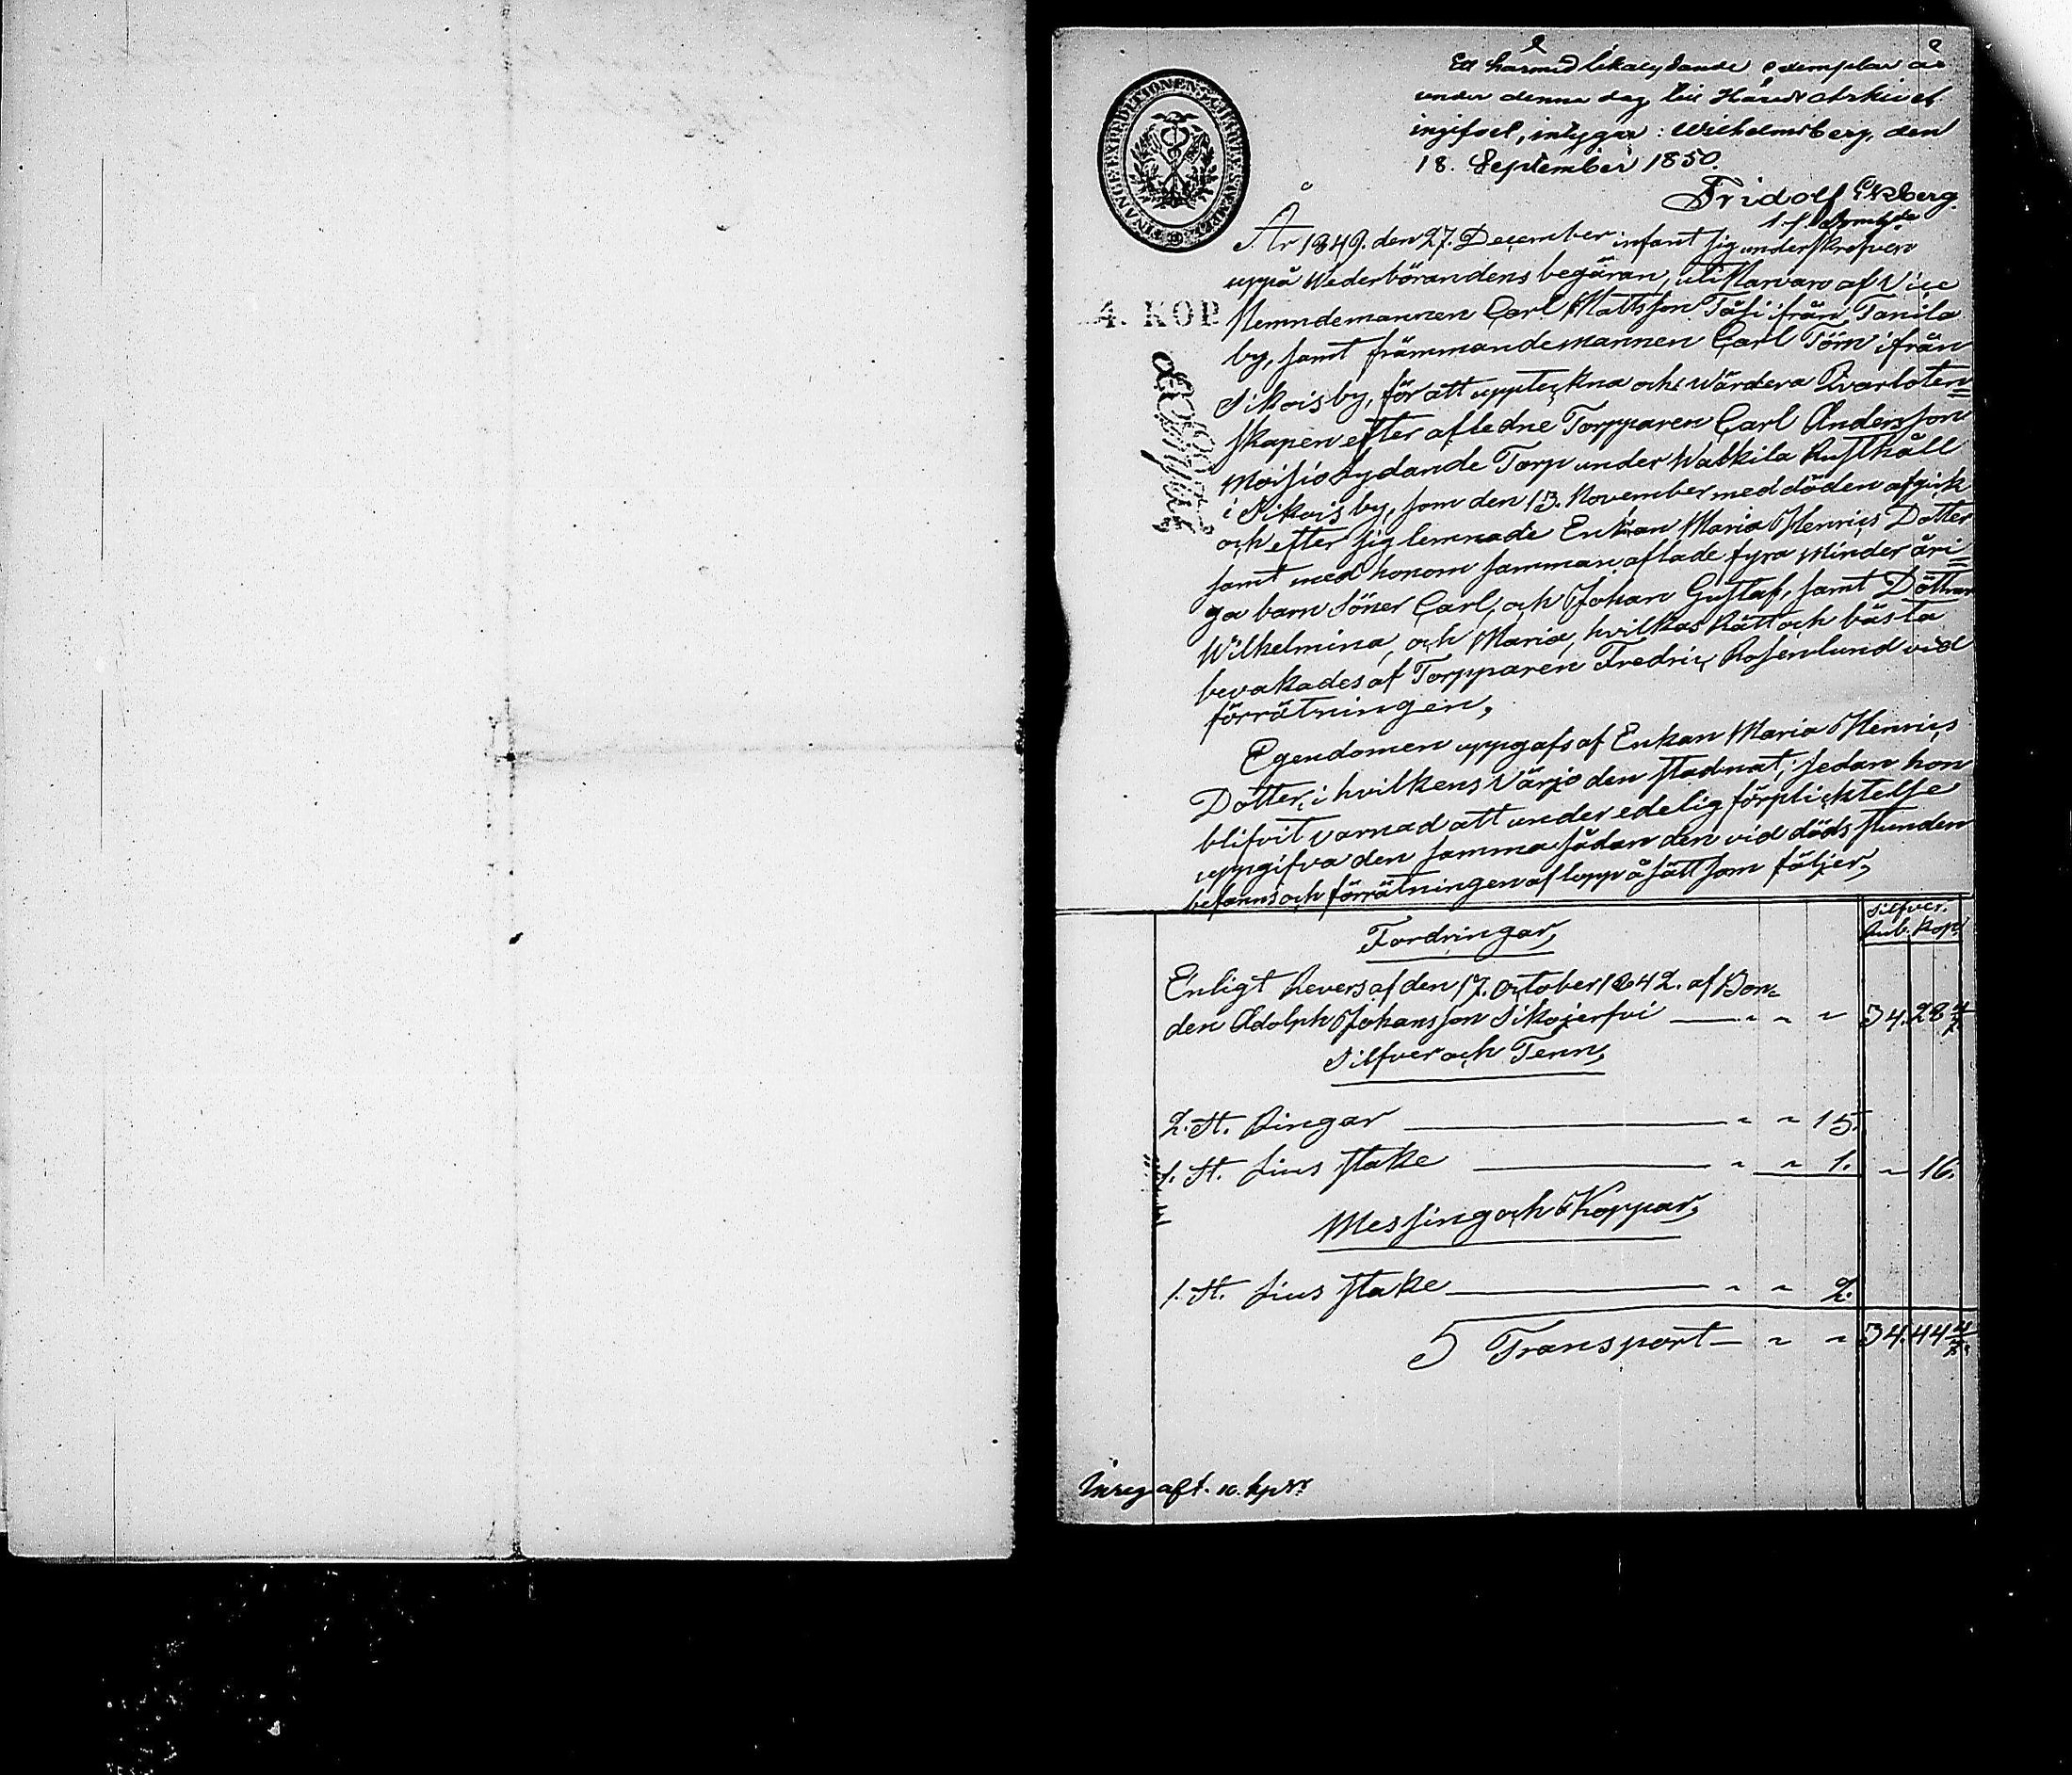 Ett härmed likalydande exemplar är
under denna dag till Härads Arkivet
ingifvet, intygar: Wilhelmsberg, den
18. September 1850.
Fridolf Ekberg
FINANCE EXPEDITIONENS CHARTÆ SIGILL
4. KOP.
År 1849. den 27. December infant sig underskrefven
uppå Wederbörandens begäran, uti Närvaro af Vice
Nemndemannen Carl Mattsson Täfi ifrån Tanila
by, samt främmandemannen Carl Törn ifrån
Sikois by, för att uppteckna och wärdera Qvarlåten=
skapen efter afledne Torpparen Carl Andersson
Moisio lydande Torp under Wabkila Rusthåll
i Sikois by, som den 13. November med döden afgick
och efter sig lemnade Enkan Maria Henrics Dotter
samt med honom samman aflade fyra Minderåri=
ga barn Söner Carl, och Johan Gustaf, samt Döttrar
Wilhelmina, och Maria, hvilkas Rätt och bästa
bevakades af Torpparen Fredric Rosenlund vid
förrätningen,
Egendomen uppgafs af Enkan Maria Henrics
Dotter, i hvilkens Värjo den stadnat, sedan hon
blifvit varnad att under edelig förplicktelse
uppgifva den samma sådan den vid dödsstunden
befanns och förrätningen aflopp å sätt som följer,
Silfver.
Rub. Kop.
Fordringar,
Enligt Revers af den 17. October 1842. af Bon=
den Adolph Johansson Sikojerfvi — " " " 34. 28 4/7
Silfver och Tenn,
2. St. Ringar — " " 15.
1. St. Lius stake — " " 1. " 16.
Messing och Koppar,
1. St. Lius stake — " " 2.
Transport — " " 34. 44 4/7